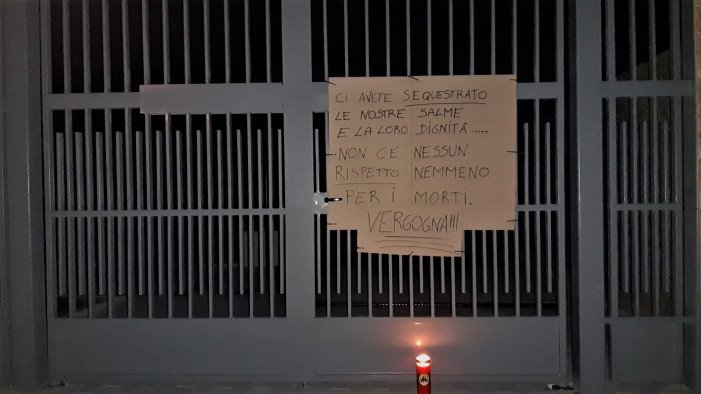 CI AVETE SEQUESTRATO
LE NOSTRE SALME
E LA LORO DIGNITÀ.....
NON C'E NESSUN
RISPETTO NEMMENO
PER I MORTI.
VERGOGNA!!!